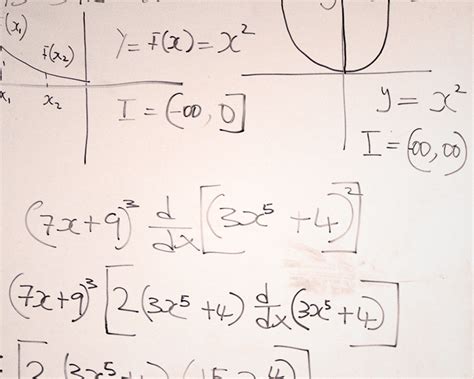 (x₁)
F(x₂)
x₁ x₂
y = F(x) = x²
I = (-∞, 0]
y = x²
I = (-∞, ∞)
(7x+9)³ d/dx [(3x⁵ + 4)²]
(7x+9)³ [2(3x⁵ + 4) d/dx (3x⁵ + 4)]